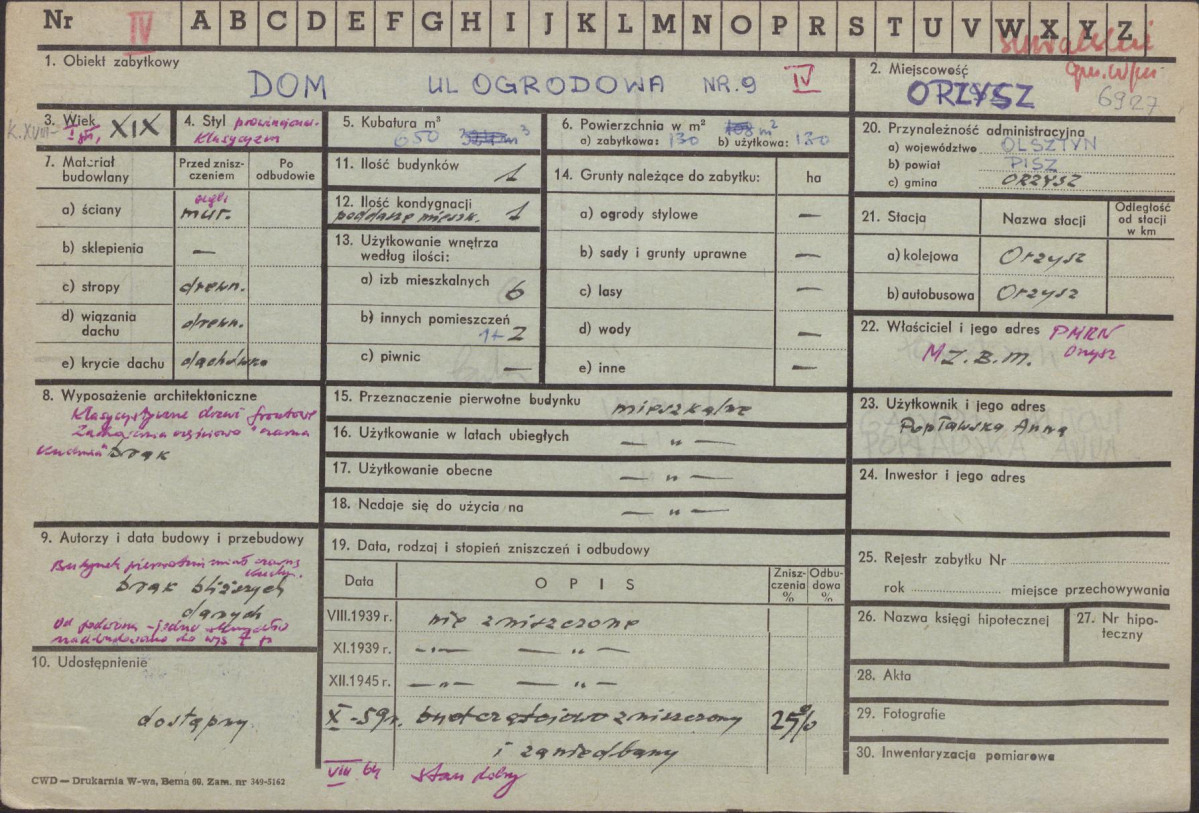 Nr IV A B C D E F G H I J K L M N O P R S T U V W X Y Z
1. Obiekt zabytkowy
DOM UL OGRODOWA NR. 9 IV
2. Miejscowość
ORZYSZ
6927
3. Wiek XIX
4. Styl
klasycyzm
5. Kubatura m³
650
6. Powierzchnia w m²
a) zabytkowa: 130 b) użytkowa: 130
7. Materiał budowlany
Przed zniszczeniem
Po odbudowie
a) ściany mur.
b) sklepienia —
c) stropy drewn.
d) wiązania dachu drewn.
e) krycie dachu dachówka
8. Wyposażenie architektoniczne
Klasycystyczne drzwi frontowe
Zachowana częściowo "czarna
kuchnia" brak
9. Autorzy i data budowy i przebudowy
Budynek pierwotnie miał czarną
kuch.
brak bliższych
danych
Od podwórza - jedno
nadbudowane do wys I p
10. Udostępnienie
dostępny
11. Ilość budynków 1
12. Ilość kondygnacji
poddasze mieszk. 1
13. Użytkowanie wnętrza
według ilości:
a) izb mieszkalnych 6
b) innych pomieszczeń 1+2
c) piwnic —
14. Grunty należące do zabytku: ha
a) ogrody stylowe —
b) sady i grunty uprawne —
c) lasy —
d) wody —
e) inne —
15. Przeznaczenie pierwotne budynku mieszkalne
16. Użytkowanie w latach ubiegłych — „ —
17. Użytkowanie obecne — „ —
18. Nadaje się do użycia na — „ —
19. Data, rodzaj i stopień zniszczeń i odbudowy
Data OPIS Zniszczenia % Odbudowa %
VIII.1939 r. nie zniszczone
XI.1939 r. — „ — — „ —
XII.1945 r. — „ — — „ —
X-59r. bud częściowo zniszczony 25%
i zaniedbany
VIII 64 stan dobry
20. Przynależność administracyjna
a) województwo OLSZTYN
b) powiat PISZ
c) gmina ORZYSZ
21. Stacja
Nazwa stacji
Odległość
od stacji
w km
a) kolejowa Orzysz
b) autobusowa Orzysz
22. Właściciel i jego adres PMRN
Orzysz
M.Z.B.M.
23. Użytkownik i jego adres
Popławska Anna
24. Inwestor i jego adres
25. Rejestr zabytku Nr
rok miejsce przechowywania
26. Nazwa księgi hipotecznej
27. Nr hipoteczny
28. Akta
29. Fotografie
30. Inwentaryzacja pomiarowa
CWD — Drukarnia W-wa, Bema 60. Zam. nr 349-5162